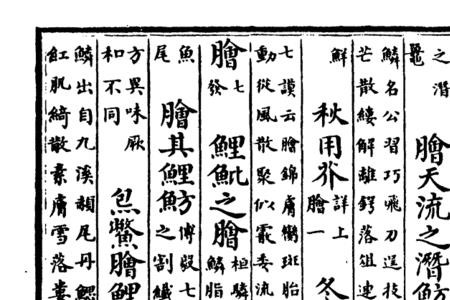 之潛
膾天流之潛魴
鱗名公習巧飛刀逞技
芒散縷解離鍔落俎連
鮮
秋用芥
詳上
膾一
冬
七謨云膾錦膚臠斑胎
動從風散聚似霰委流
膾
七
發
鯉魮之膾
桓驎
鱗脂
魚
尾
膾其鯉魴
傅毅七
之割纖
方異味厥
和不同
炰鱉膾鯉
鱗出自九溪頳尾丹鰓
紅肌綺散素膚雪落